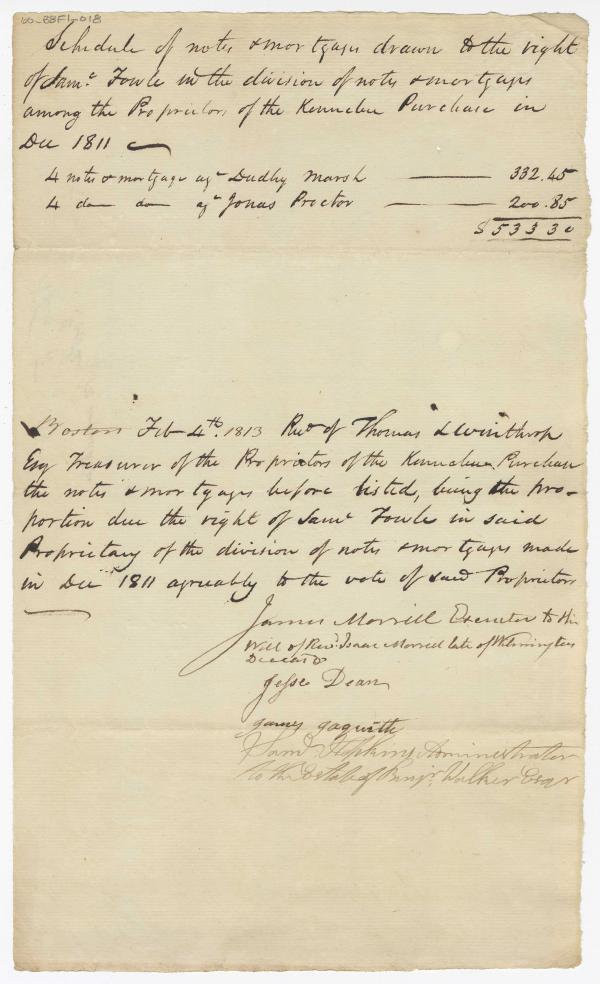 60-BBF1-018
Schedule of notes & mortgages drawn to the right
of Saml Fowle in the division of notes & mortgages
among the Proprietors of the Kennebec Purchase in
Dec 1811
4 notes & mortgage agt Dudley Marsh 332.45
4 do do agt Jonas Proctor 200.85
$ 533 30
Boston Feb 4th 1813 Recd of Thomas L Winthrop
Esq Treasurer of the Proprietors of the Kennebec Purchase
the notes & mortgages before listed, being the pro-
portion due the right of Saml Fowle in said
Proprietary of the division of notes & mortgages made
in Dec 1811 agreeably to the vote of said Proprietors
James Morrill Executor to the
Will of Revd Isaac Morrill late of Wilmington
Deceasd
Jesse Dean
James Jaquith
Saml Hopkins Administrator
to the Estate of Benjn Walker Esqr